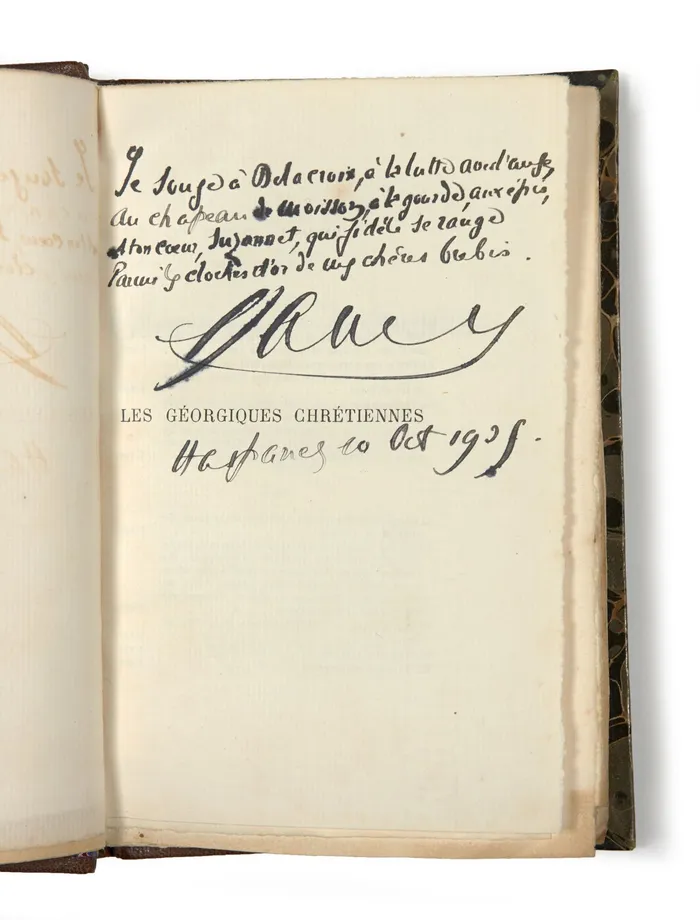 Je songe à Delacroix, à la lutte avec l'ange,
Au chapeau de moisson, à la gourde, aux épis,
A ton cœur, Suzannet, qui fidèle se range
Parmi les cloches d'or de mes chères brebis.
Jammes
LES GÉORGIQUES CHRÉTIENNES
Hasparren 10 Oct